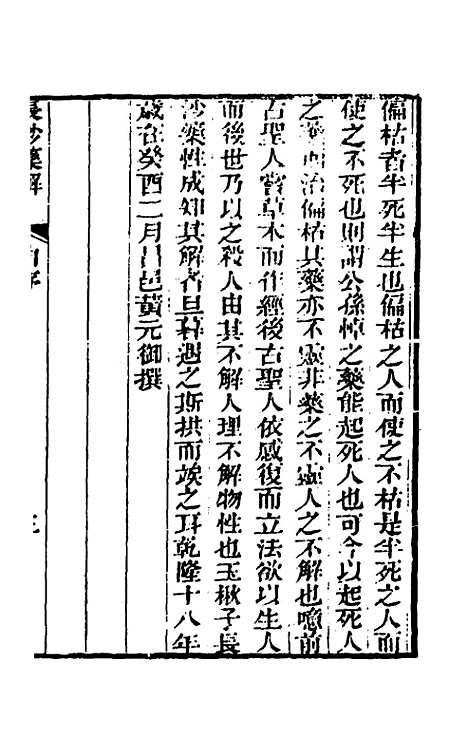 偏枯者半死半生也偏枯之人而使之不枯是半死之人而
使之不死也則謂公孫悼之藥能起死人也可今以起死人
之藥而治偏枯其藥亦不靈非藥之不靈人之不解也噫前
古聖人嘗草木而作經後古聖人依感復而立法欲以生人
而後世乃以之殺人由其不解人理不解物性也玉楸子長
沙藥性成知其解者旦暮遇之斯拱而竢之耳乾隆十八年
歲在癸酉二月昌邑黃元御撰
長沙藥解
自序
三